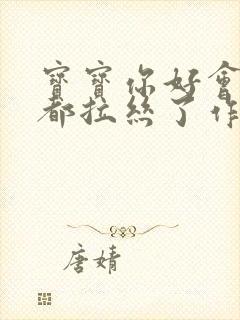 寶寶你好會
都拉絲了作
唐婧